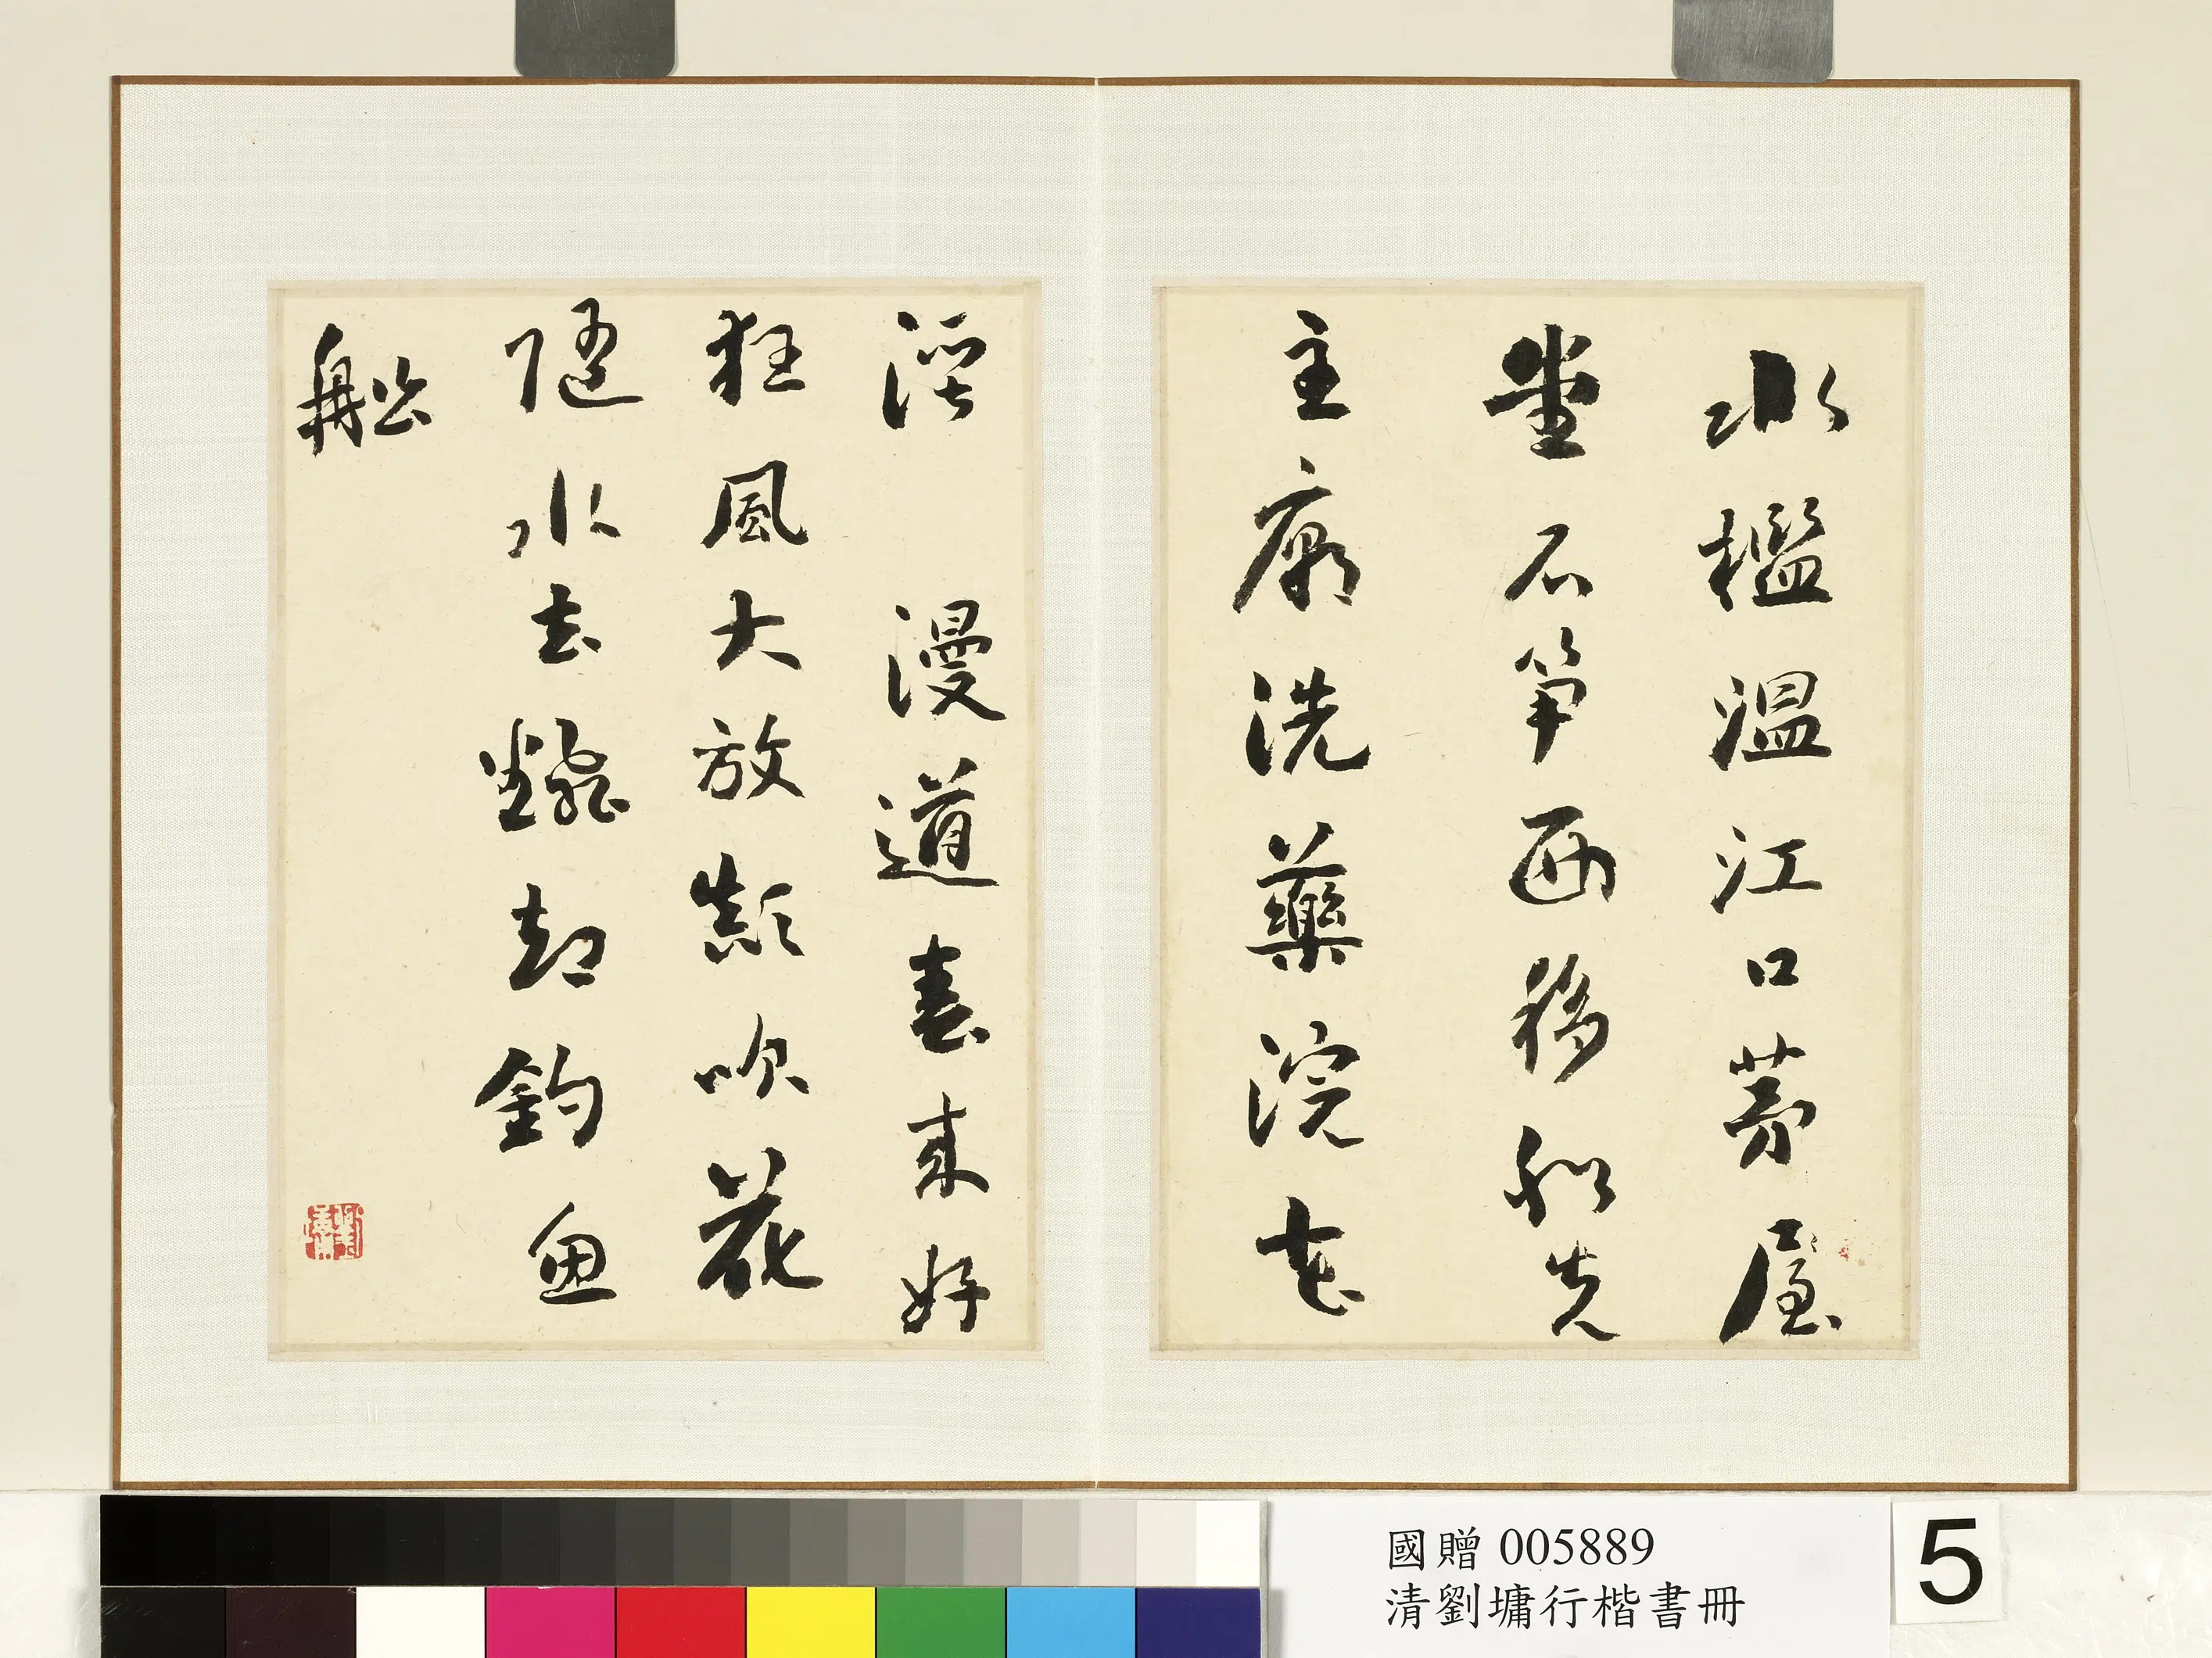 水檻溫江口茅屋
堂石筍西移船先
主廟洗藥浣花
溪 漫道春來好
狂風大放顛吹花
隨水去翻卻釣魚
船
劉墉
國贈 005889
清劉墉行楷書冊
5